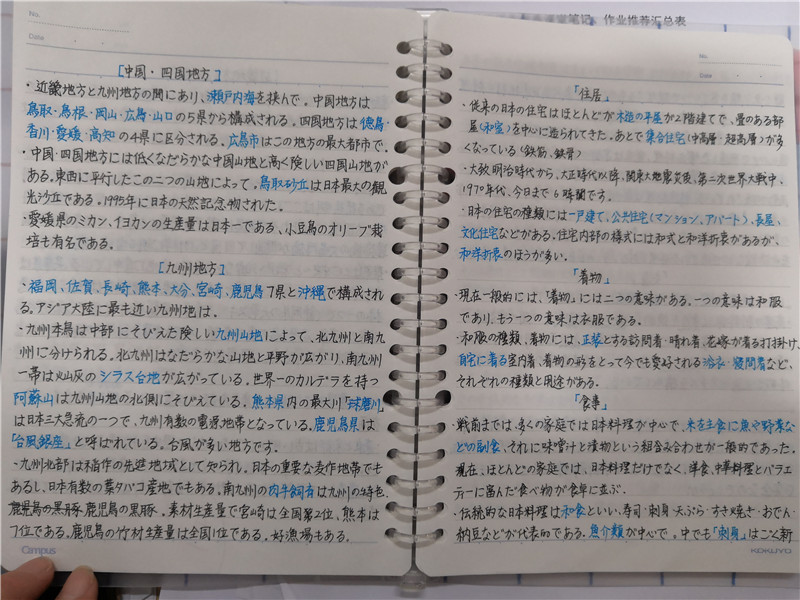 笔记、作业推荐汇总表
No.
Date
[中国・四国地方]
・近畿地方と九州地方の間にあり、瀬戸内海を挟んで。中国地方は
鳥取・島根・岡山・広島・山口の5県から構成される。四国地方は徳島・
香川・愛媛・高知の4県に区分される。広島市はこの地方の最大都市で。
・中国・四国地方には低くなだらかな中国山地と高く険しい四国山地が
ある。東西に平行したこの二つの山地によって。鳥取砂丘は日本最大の観
光沙丘である。1995年に日本の天然記念物された。
・愛媛県のミカン、イヨカンの生産量は日本一である、小豆島のオリーブ栽
培も有名である。
[九州地方]
・福岡、佐賀、長崎、熊本、大分、宮崎、鹿児島7県と沖縄で構成され
る。アジア大陸に最も近い九州地は。
・九州本島は中部にそびえた険しい九州山地によって、北九州と南九
州に分けられる。北九州はなだらかな山地と平野が広がり、南九州
一帯は火山灰のシラス台地が広がっている。世界一のカルデラを持つ
阿蘇山は九州山地の北側にそびえている。熊本県内の最大川「球磨川」
は日本三大急流の一つで、九州有数の電源地帯となっている。鹿児島県は
「台風銀座」と呼ばれている。台風が多い地方です。
・九州北部は稲作の先進地域として知られ。日本の重要な麦作地帯でも
あるし、日本有数の葉タバコ産地でもある。南九州の肉牛飼育は九州の特色。
鹿児島の黒豚、鹿児島の黒豚。素材生産量で宮崎は全国第2位、熊本は
7位である。鹿児島の竹材生産量は全国1位である。好漁場もある。
Campus
No.
Date
「住居」
・従来の日本の住宅はほとんどが木造の平屋が2階建てで、畳のある部
屋(和室)を中心に造られてきた。あとで集合住宅(中高層・超高層)が多
くなっている(鉄筋、鉄骨)
・大致明治時代から、大正時代以降、関東大地震災後、第二次世界大戦中、
1970年代、今日まで6時間です。
・日本の住宅の種類には一戸建て、公共住宅(マンション、アパート)、長屋、
文化住宅などがある。住宅内部の様式には和式と和洋折衷があるが、
和洋折衷のほうが多い。
「着物」
・現在一般的には、「着物」には二つの意味がある。一つの意味は和服
であり、もう一つの意味は衣服である。
・和服の種類、着物には、正装とする訪問着・晴れ着、花嫁が着る打掛け、
自宅に着る室内着、着物の形をとって今でも愛好される浴衣・寝間着など、
それぞれの種類と用途がある。
「食事」
・戦前までは、多くの家庭では日本料理が中心で、米を主食に魚や野菜な
どの副食、それに味噌汁と漬物という組合み合わせが一般的であった。
現在、ほとんどの家庭では、日本料理だけでなく、洋食、中華料理とバラエ
ティーに富んだ食べ物が食卓に並ぶ。
・伝統的な日本料理は和食といい、寿司・刺身・天ぷら・すき焼き・おでん・
納豆などが代表的である。魚介類が中心で。中でも「刺身」はごく新
KOKUYO